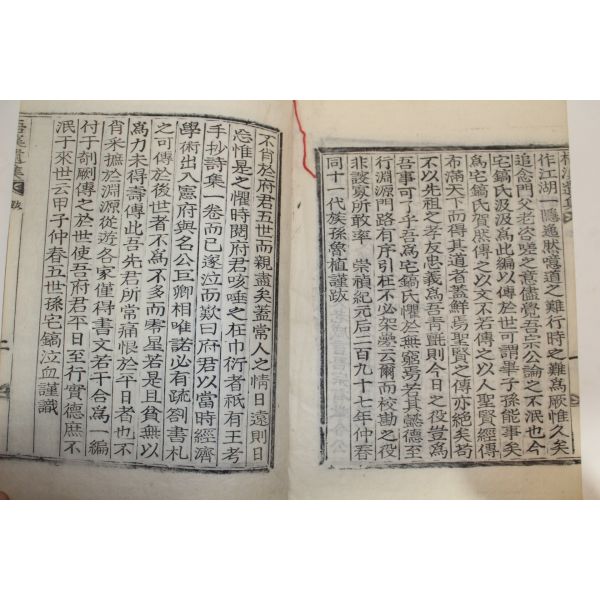 作江湖一隱逸肰噫道之難行時之難為厥惟久矣
追念門父老咨嗟之意儘覺吾宗公論之不泯也今
宅鎬氏汲汲為此編以傳於世可謂畢子孫能事矣
為宅鎬氏賀然傳之以文不若傳之以人聖賢經傳
布滿天下而得其道者蓋鮮焉聖賢之傳亦絶矣苟
不以先祖之孝友忠義為吾靑氈則今日之役豈為
吾事可了乎吾為宅鎬氏懼於無窮焉若其懿德至
行淵源門路有序引在不必架疊云爾而校勘之役
非謏寡所敢率 崇禎紀元后二百九十七年仲春
同十一代族孫魯植謹跋
不肖於府君五世而親盡矣蓋常人之情日遠則日
忘惟是之懼時閱府君咳唾之在巾衍者祇有王考
手抄詩集一卷而已遂泣而歎曰府君以當時經濟
學術出入憲府與名公巨卿相唯諾必有疏劄書札
之可傳於後世者不為不多而零星若是且貧無以
為力未得壽傳此吾先君所常痛恨於平日者也不
肖采摭於淵源從遊名家僅得書文若干合為一編
付于剞劂傳之於世使吾府君平日至行實德庶不
泯于來世云甲子仲春五世孫宅鎬泣血謹識
跋